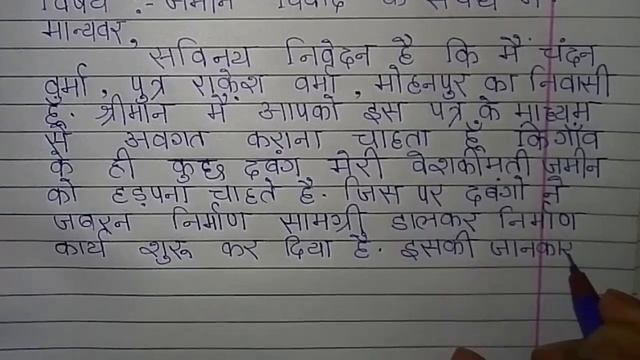 विषय :- जमीन विवाद के संबंध में
मान्यवर,
सविनय निवेदन है कि मैं चंदन
वर्मा, पुत्र राकेश वर्मा, मोहनपुर का निवासी
हूँ. श्रीमान मैं आपको इस पत्र के माध्यम
से अवगत कराना चाहता हूँ कि गाँव
के ही कुछ दबंग मेरी वेशकीमती जमीन
को हड़पना चाहते है. जिस पर दबंगो ने
जबरन निर्माण सामग्री डालकर निर्माण
कार्य शुरू कर दिया है. इसकी जानकार